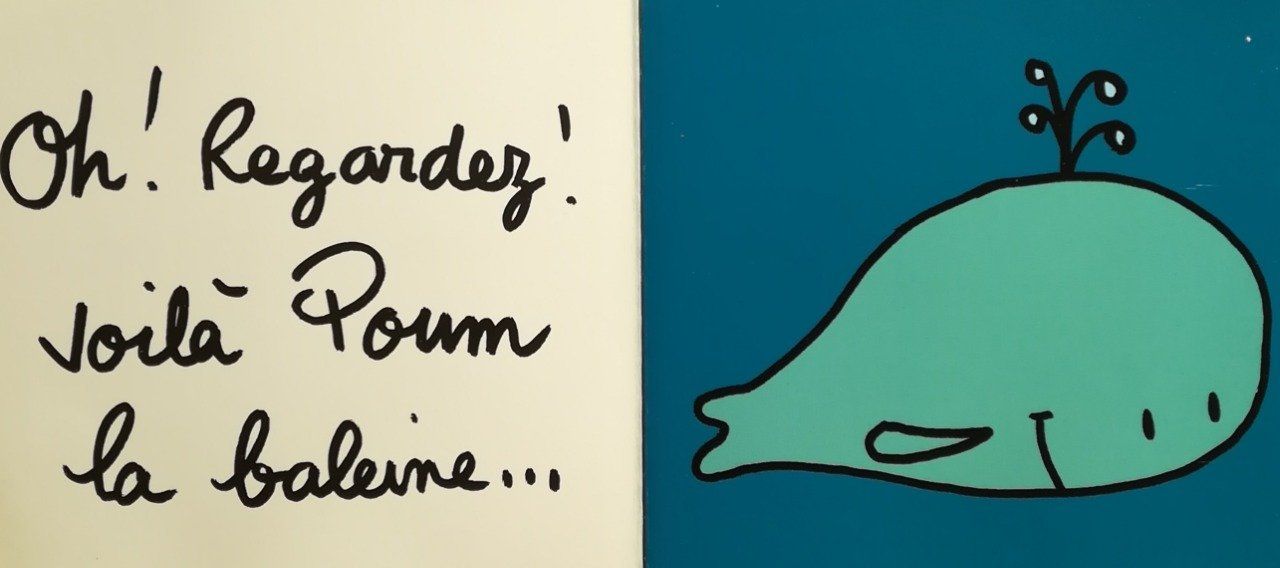 Oh! Regardez!
voilà Poum
la baleine...